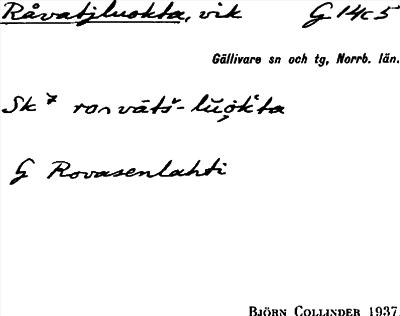 Råvatjluokta, vik G 14c5
Gällivare sn och tg, Norrb. län.
Sk
G Rovasenlahti
BJÖRN COLLINDER 1937.